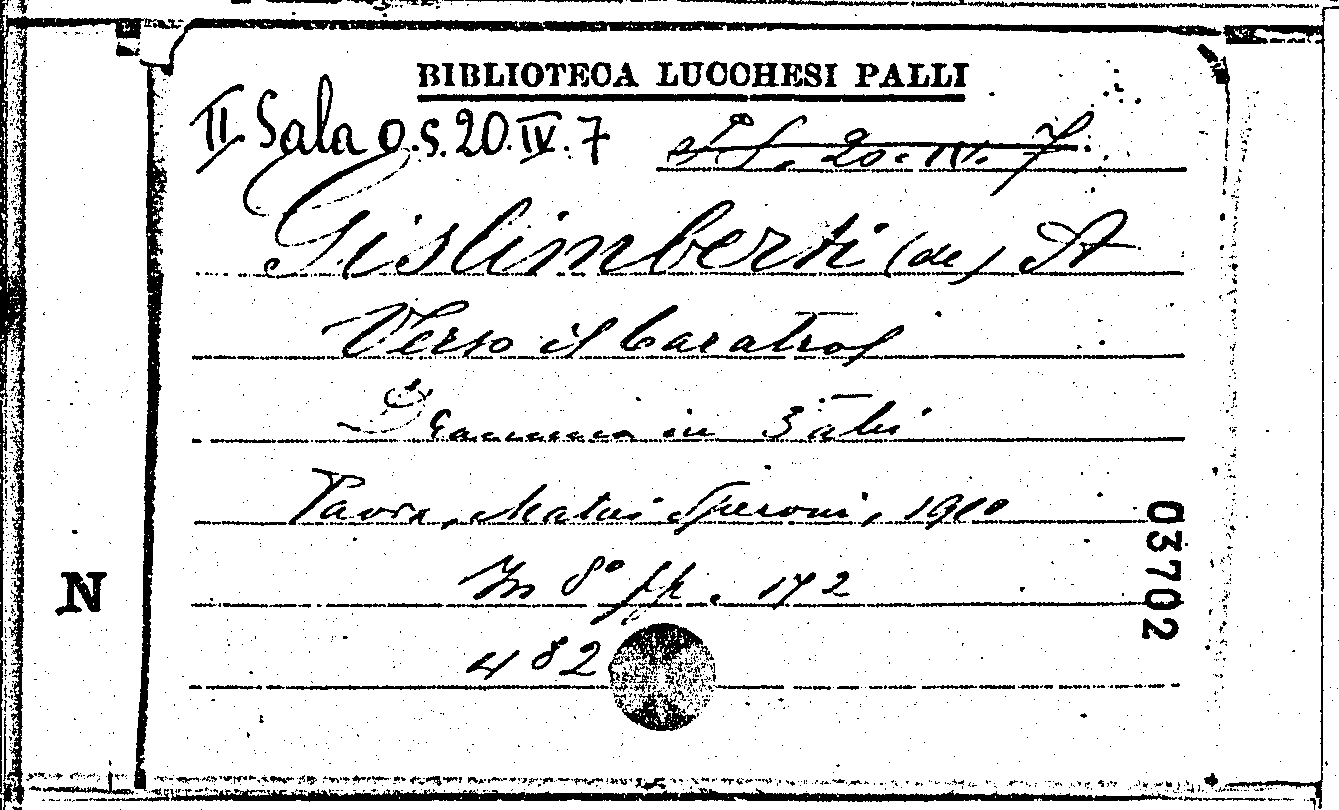 BIBLIOTECA LUCCHESI PALLI
II Sala O.S. 20. IV. 7 S.S. 20. IV. 7
Gislimberti (de) A
Verso il baratro
Dramma in 3 atti
Pavia, Mattei Speroni, 1910
In 8° pp. 172
482
N
03702